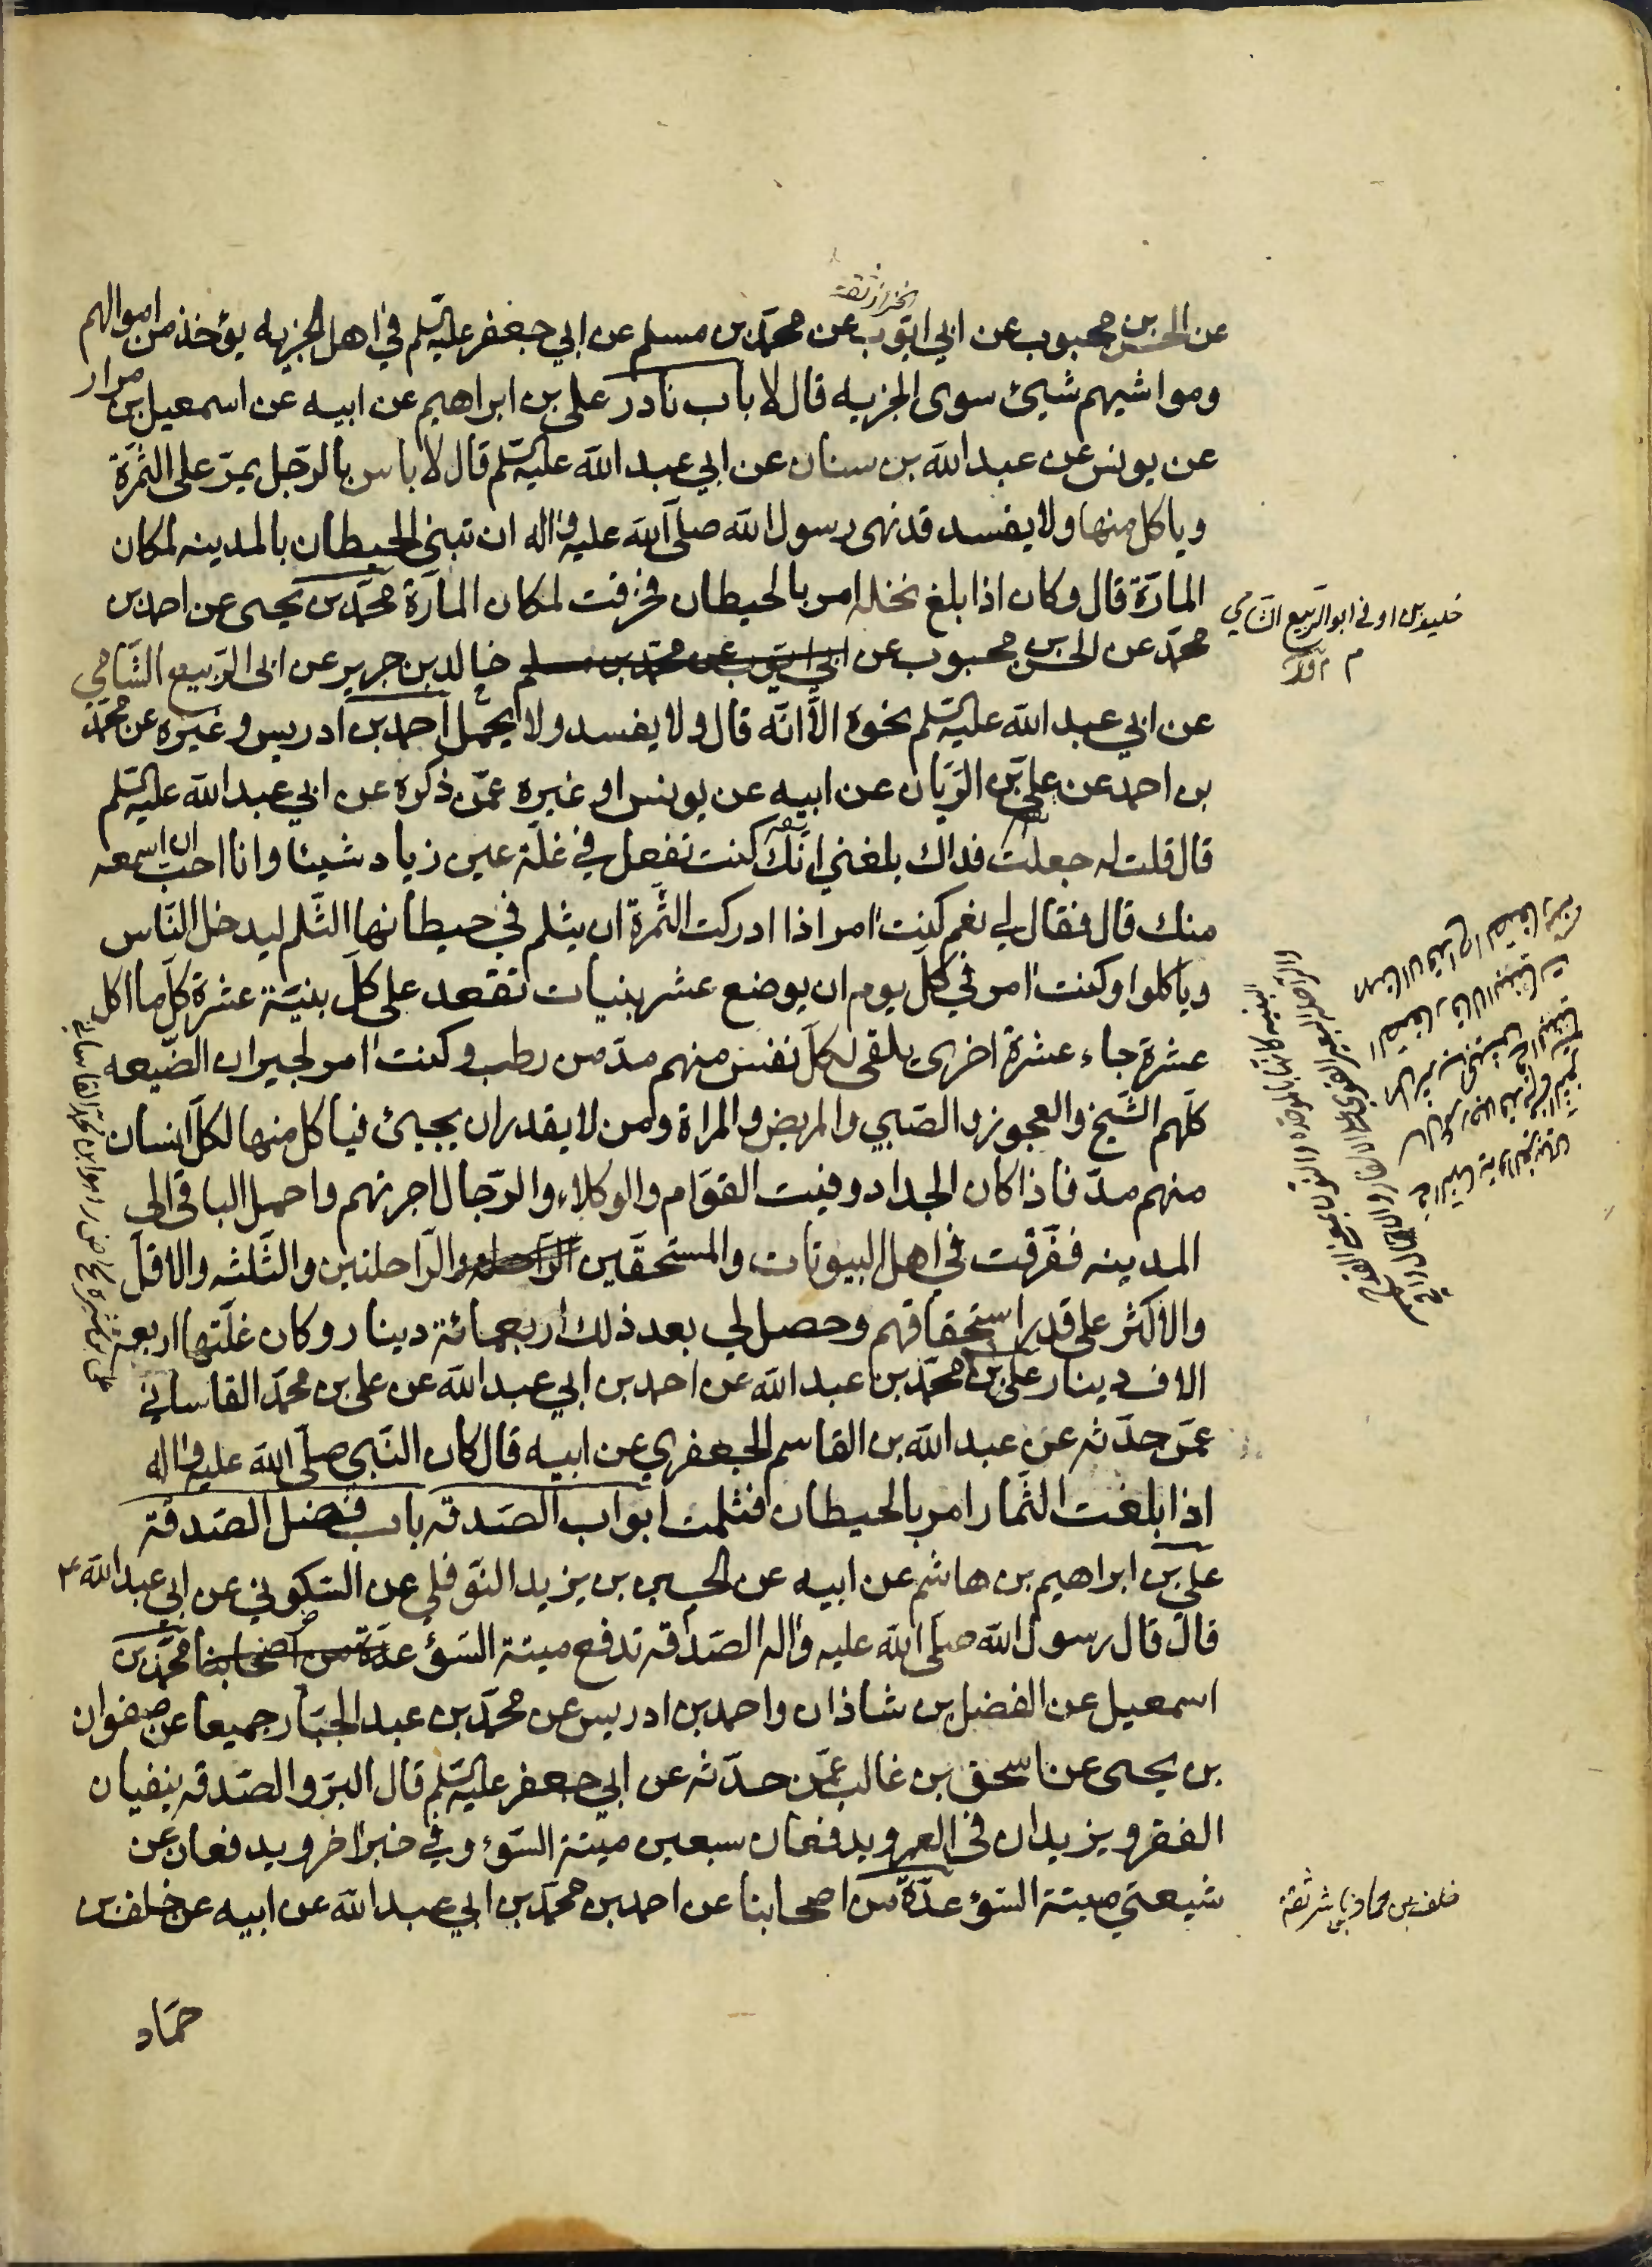 الخزاز ثقة
عن الحسن بن محبوب عن ابي ايوب عن محمد بن مسلم عن ابي جعفر عليه السلم في اهل الجزيه يؤخذ من اموالهم
ومواشيهم شيئ سوى الجزيه قال لا باب نادر علي بن ابراهيم عن ابيه عن اسمعيل بن مرار
عن يونس عن عبد الله بن سنان عن ابي عبد الله عليه السلم قال لا باس بالرجل يمر على الثمرة
وياكل منها ولا يفسد قد نهى رسول الله صلى الله عليه واله ان تبنى الحيطان بالمدينه لمكان
المارة قال وكان اذا بلغ نخله امر بالحيطان فخرقت لمكان المارة محمد بن يحيى عن احمد بن
محمد عن الحسن بن محبوب عن ابي ايوب عن محمد بن مسلم خالد بن جرير عن ابي الربيع الشامي
عن ابي عبد الله عليه السلم نحوه الا انه قال ولا يفسد ولا يحمل احمد بن ادريس وغيره عن محمد
بن احمد عن علي بن الريان عن ابيه عن يونس او غيره عمن ذكره عن ابي عبد الله عليه السلم
قال قلت له جعلت فداك بلغني انك كنت تفعل في غلة عين زياد شيئا وانا احب ان اسمعه
منك قال فقال لي نعم كنت امر اذا ادركت الثمرة ان يثلم في حيطانها الثلم ليدخل الناس
وياكلوا وكنت امر في كل يوم ان يوضع عشر بنيات تقعد على كل بنية عشرة كلما اكل
عشرة جاء عشرة اخرى يلقى لكل نفس منهم مد من رطب وكنت امر لجيران الضيعه
كلهم الشيخ والعجوز والصبي والمريض والمراة ومن لا يقدر ان يجيئ فياكل منها لكل انسان
منهم مد فاذا كان الجداد وفيت القوام والوكلاء والرجال اجرتهم واحمل الباقي الى
المدينه ففرقت في اهل البيوتات والمستحقين الراحله والراحلتين والثلثه والاقل
والاكثر على قدر استحقاقهم وحصل لي بعد ذلك اربعمائة دينار وكان غلتها اربعة
الاف دينار علي بن محمد بن عبد الله عن احمد بن ابي عبد الله عن علي بن محمد القاساني
عمن حدثه عن عبد الله بن القاسم الجعفري عن ابيه قال كان النبي صلى الله عليه واله
اذا بلغت الثمار امر بالحيطان فثلمت ابواب الصدقه باب فضل الصدقة
علي بن ابراهيم بن هاشم عن ابيه عن الحسين بن يزيد النوفلي عن السكوني عن ابي عبد الله ع
قال قال رسول الله صلى الله عليه واله الصدقه تدفع ميتة السوء عدة من اصحابنا محمد بن
اسمعيل عن الفضل بن شاذان واحمد بن ادريس عن محمد بن عبد الجبار جميعا عن صفوان
بن يحيى عن اسحق بن غالب عمن حدثه عن ابي جعفر عليه السلم قال البر والصدقه ينفيان
الفقر ويزيدان في العمر ويدفعان سبعين ميتة السوء وفي خبر اخر ويدفعان عن
شيعتي ميتة السوء عدة من اصحابنا عن احمد بن محمد بن ابي عبد الله عن ابيه عن خلف بن
حماد
خليد بن اوفى ابو الربيع الشامي
خلف بن حماد بن ياشر ثقة